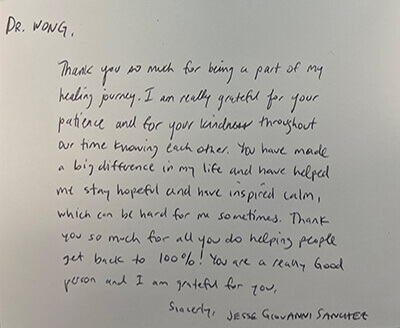 DR. WONG,
Thank you so much for being a part of my
healing journey. I am really grateful for your
patience and for your kindness throughout
our time knowing each other. You have made
a big difference in my life and have helped
me stay hopeful and have inspired calm,
which can be hard for me sometimes. Thank
you so much for all you do helping people
get back to 100%! You are a really Good
person and I am grateful for you,
Sincerly, JESSE GIOVANNI SANCHEZ